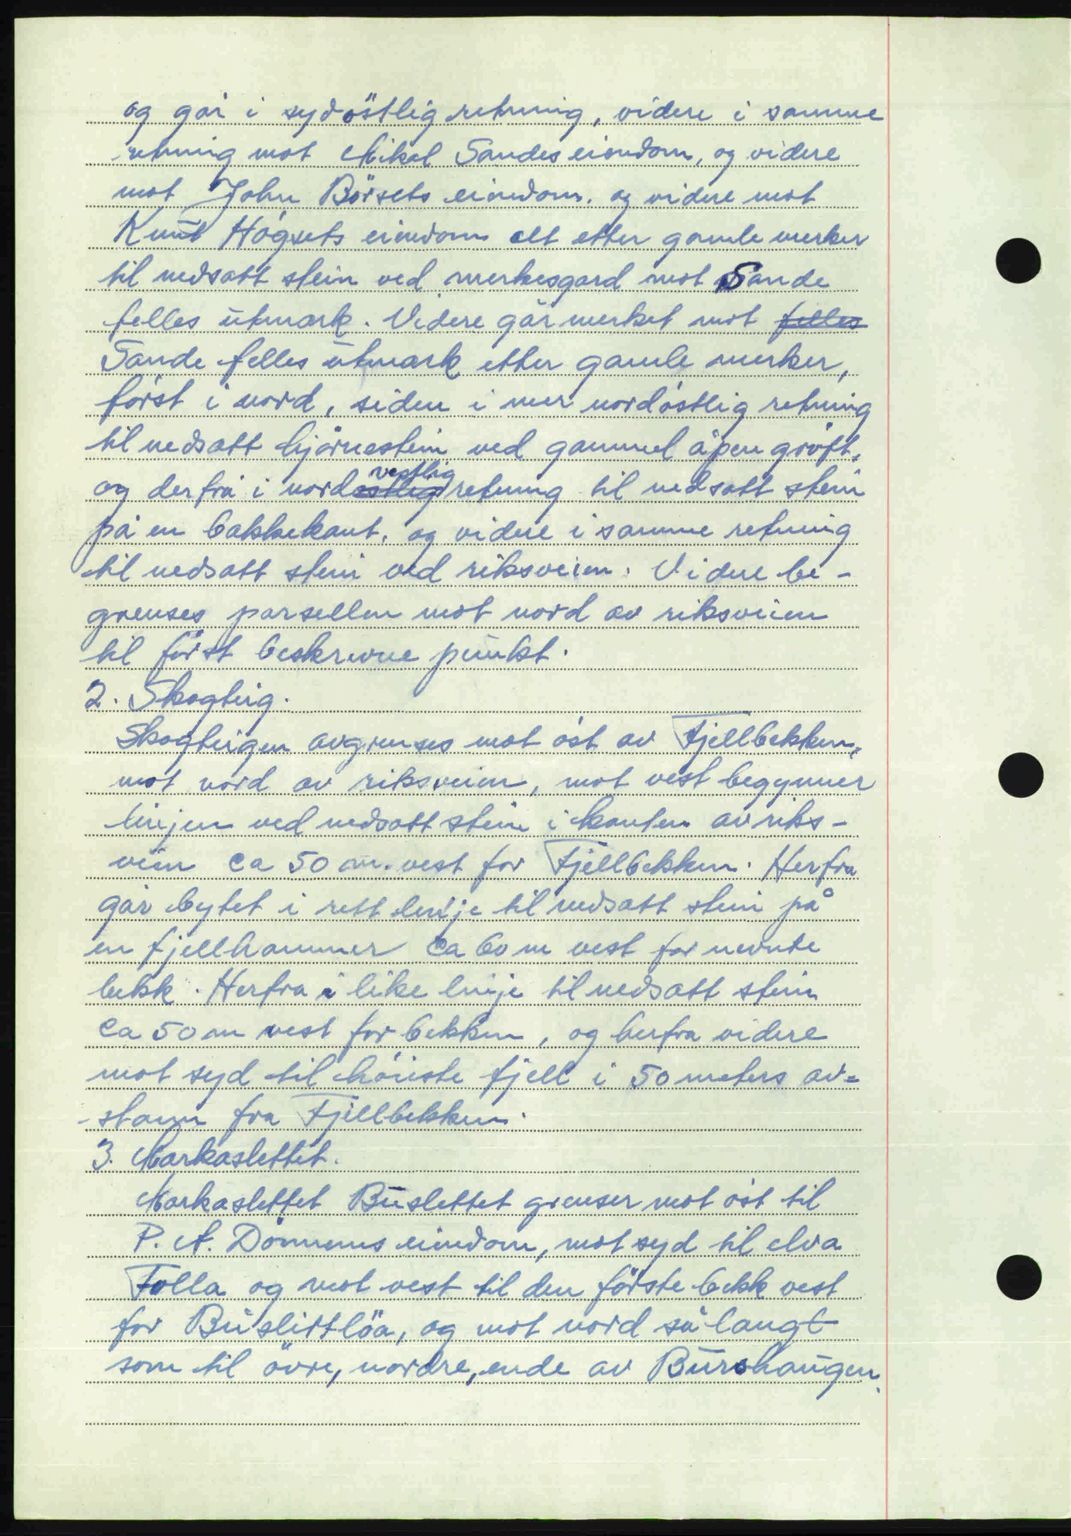 og går i sydöstlig retning, videre i samme
retning mot Mikal Sandes eiendom, og videre
mot John Börsets eiendom, og videre mot
Knut Högsets eiendom alt etter gamle merker
til nedsatt stein ved merkesgard mot Sande
felles utmark. Videre går merket mot felles
Sande felles utmark etter gamle merker,
först i nord, siden i mer nordöstlig retning
til nedsatt hjörnestein ved gammel åpen gröft,
og derfra i nordöstlig vestlig retning til nedsatt stein
på en bakkekant, og videre i samme retning
til nedsatt stein ved riksveien. Videre be-
grenses parsellen mot nord av riksveien
til först beskrevne punkt.
2. Skogteig.
Skogteigen avgrenses mot öst av Fjellbekken,
mot nord av riksveien, mot vest begynner
linjen ved nedsatt stein i kanten av riks-
veien ca 50 m. vest for Fjellbekken. Herfra
går bytet i rett linje til nedsatt stein på
en fjellhammer ca 60 m vest for nevnte
bekk. Herfra i like linje til nedsatt stein
ca 50 m vest for bekken, og herfra videre
mot syd til höieste fjell i 50 meters av=
-stann fra Fjellbekken.
3. Markaslettet.
Markaslettet Buslettet grenser mot öst til
P. A. Dönnems eiendom, mot syd til elva
Folla og mot vest til den förste bekk vest
for Buslittlöa, og mot nord så langt
som til övre, nordre, ende av Burshaugen.